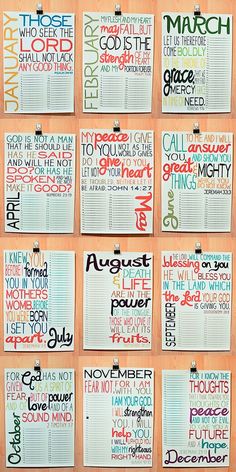 JANUARY
THOSE
WHO SEEK THE
LORD
SHALL NOT LACK
ANY GOOD THING.
FEBRUARY
MY FLESH AND MY HEART
may FAIL, BUT
GOD IS THE
strength
OF MY HEART
AND MY
PORTION FOREVER
MARCH
LET US THEREFORE
COME BOLDLY
grace
MERCY
NEED.
APRIL
GOD IS NOT A MAN
THAT HE SHOULD LIE,
HAS HE SAID
AND WILL HE NOT
DO? OR HAS HE
SPOKEN
AND WILL HE NOT
MAKE IT
GOOD?
NUMBERS 23:19
MY peace I GIVE
TO YOU NOT AS THE
WORLD GIVES
DO I give TO YOU.
LET NOT YOUR heart
BE TROUBLED,
NEITHER LET IT
BE AFRAID. JOHN 14:27
May
June
CALL TO ME AND I WILL
ANSWER YOU
AND SHOW YOU
great AND
MIGHTY
THINGS
JEREMIAH 33:3
I KNEW YOU
BEFORE I formed
YOU IN YOUR
MOTHERS
WOMB BEFORE
YOU WERE BORN
I SET YOU
apart.
July
August
DEATH
AND
LIFE
ARE IN THE
power
OF THE
TONGUE,
THOSE WHO LOVE IT
WILL EAT
ITS
fruits.
SEPTEMBER
THE LORD WILL COMMAND THE
blessing ON YOU
HE WILL BLESS YOU
IN THE LAND WHICH
the Lord YOUR GOD
IS GIVING
YOU
October
FOR God HAS
NOT
GIVEN US A SPIRIT
OF FEAR,
BUT OF power
AND OF
love AND OF A
SOUND
MIND.
2 TIMOTHY 1:7
NOVEMBER
FEAR NOT FOR I AM
WITH YOU
I AM YOUR GOD.
I will strengthen
YOU,
I WILL
HELP YOU,
I WILL UPHOLD YOU
WITH MY righteous
RIGHT HAND.
FOR I KNOW THE
THOUGHTS
THAT I THINK
TOWARD YOU
THOUGHTS OF
peace
AND NOT OF EVIL
TO GIVE YOU A
FUTURE
AND A
HOPE.
December